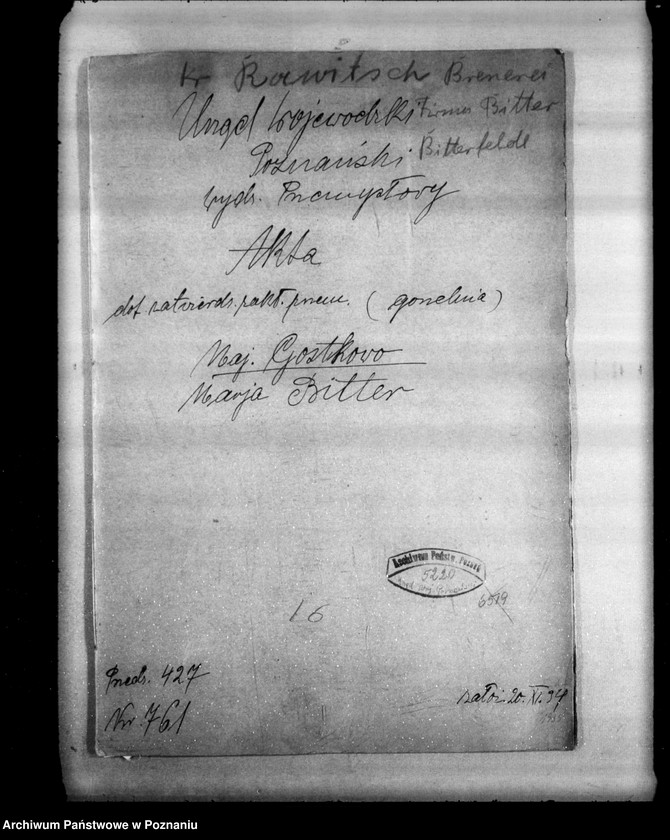 Kr Rawitsch Brenerei
Urząd Wojewódzki Firma Bitter
Poznański Bitterfelde
wydz. Przemysłowy
Akta
dot. zatwierdz. zakł. przem. (gorzelnia)
Maj. Gostkowo
Marja Bitter
Archiwum Państw. Poznań
5220
6519
16
Przeds. 427
Nr. 761
założ. 20. XI. 34
Archiwum Państwowe w Poznaniu